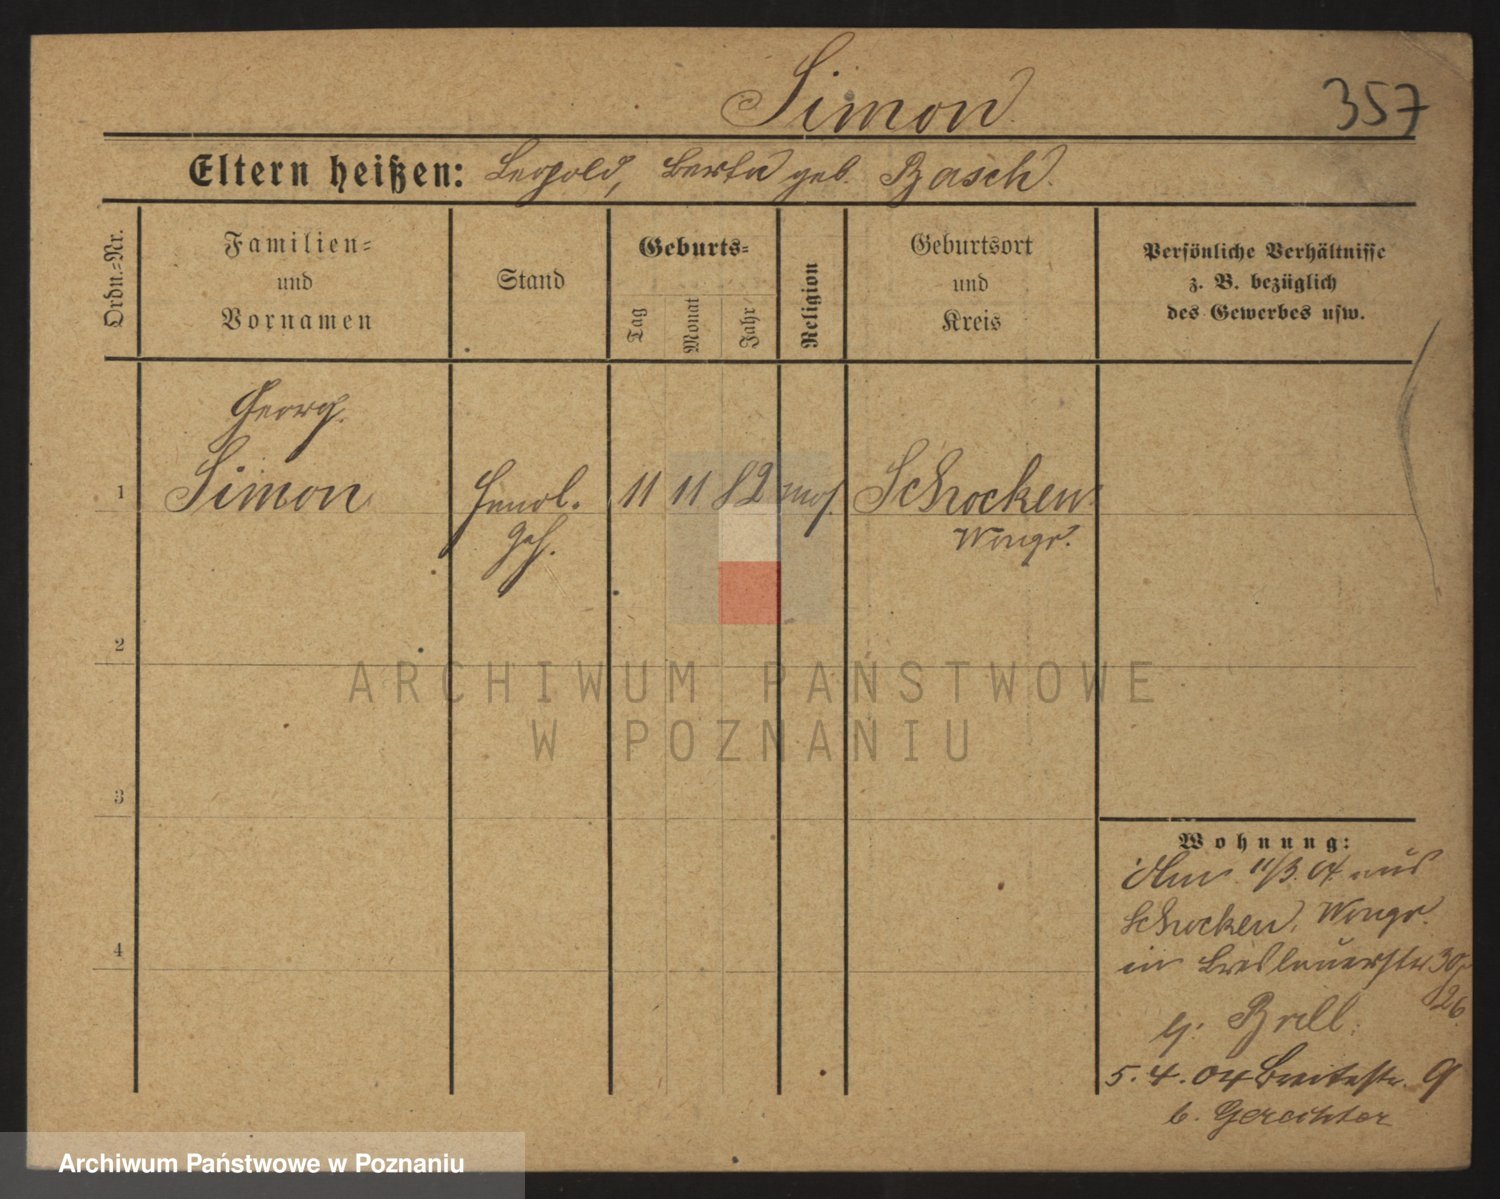 Simon
357
Eltern heißen: Leopold, Berta geb. Basch.
Ordn.-Nr.
Familien-
und
Vornamen
Stand
Geburts-
Tag
Monat
Jahr
Religion
Geburtsort
und
Kreis
Persönliche Verhältnisse
z. B. bezüglich
des Gewerbes usw.
Georg
1 Simon Handl. 11 11 82 mos. Schocken
Geh. Wongr.
2
3
4
Wohnung:
Am 11/3. 04. aus
Schocken, Wongr.
in Breslauerstr 30
26
b. Brill.
5. 4. 04 Breitestr. 9
b. Gerechter
ARCHIWUM PAŃSTWOWE
W POZNANIU
Archiwum Państwowe w Poznaniu